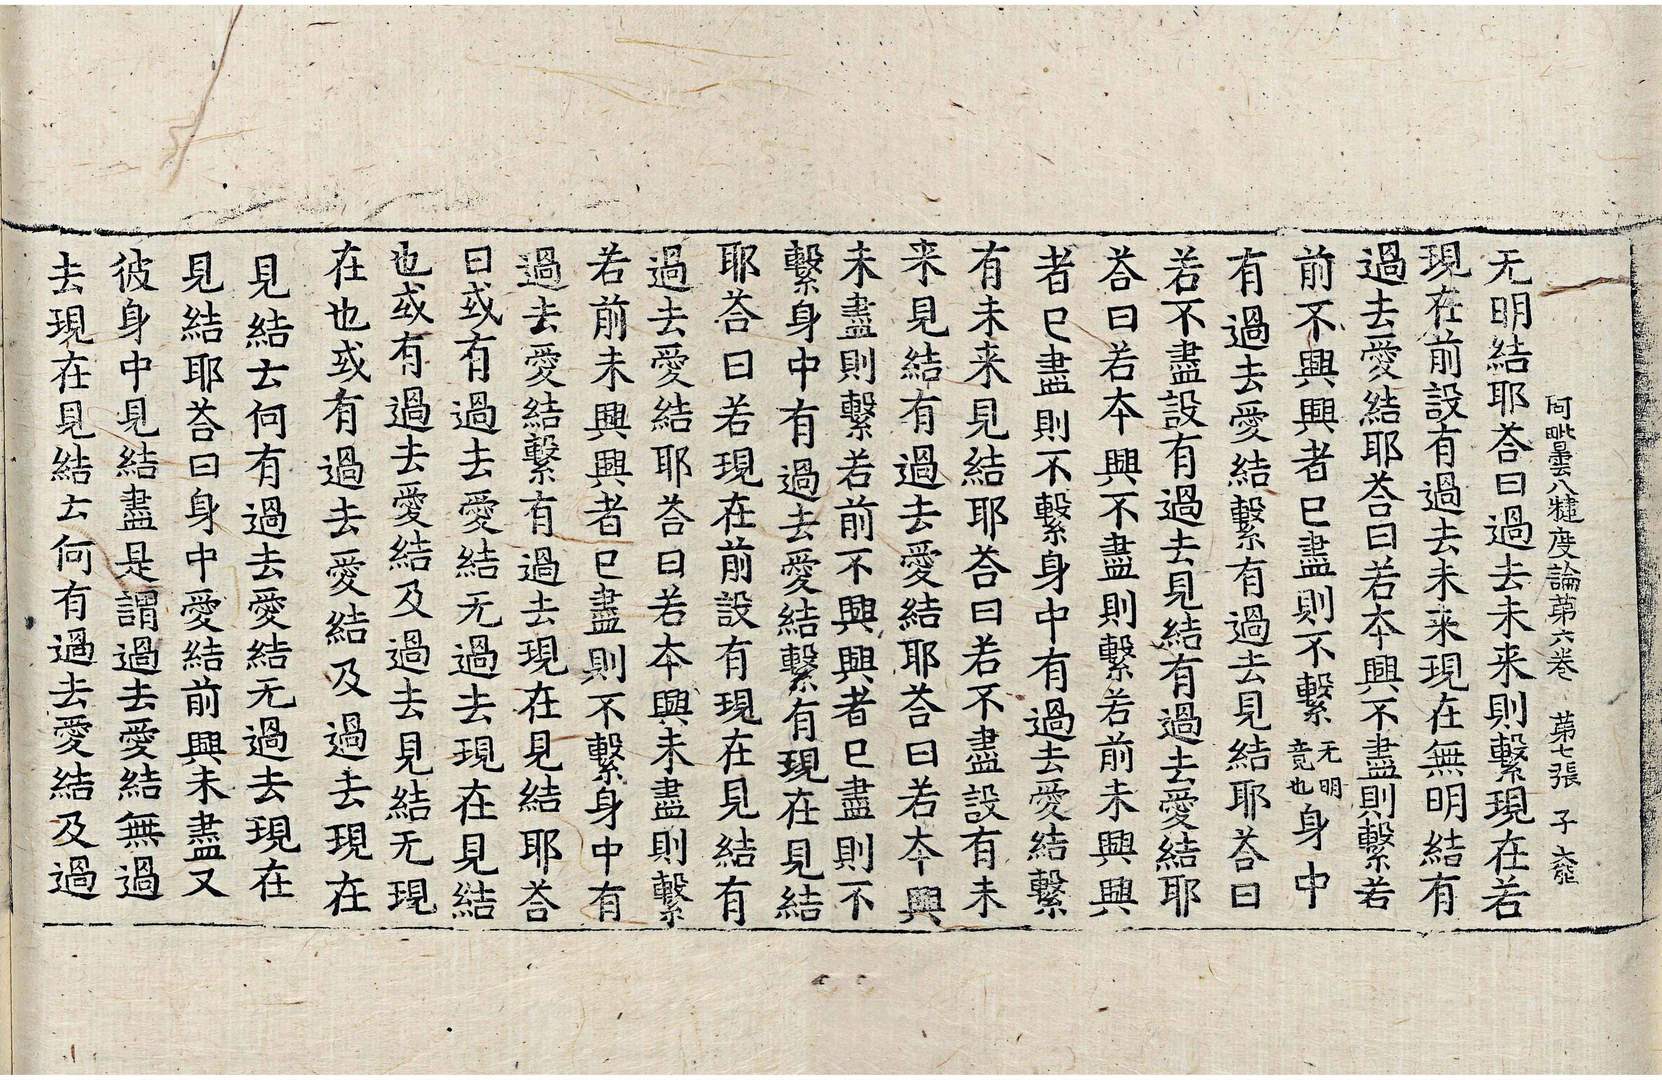 阿毗曇八犍度論第六卷 第七張 子
无明結耶荅曰過去未来則繫現在若
現在前設有過去未来現在無明結有
過去愛結耶荅曰若夲興不盡則繫若
前不興興者已盡則不繫无明竟也身中
有過去愛結繫有過去見結耶荅曰
若不盡設有過去見結有過去愛結耶
荅曰若夲興不盡則繫若前未興興
者已盡則不繫身中有過去愛結繫
有未来見結耶荅曰若不盡設有未
来見結有過去愛結耶荅曰若夲興
未盡則繫若前不興興者已盡則不
繫身中有過去愛結繫有現在見結
耶荅曰若現在前設有現在見結有
過去愛結耶荅曰若夲興未盡則繫
若前未興興者已盡則不繫身中有
過去愛結繫有過去現在見結耶荅
曰或有過去愛結无過去現在見結
也或有過去愛結及過去見結无現
在也或有過去愛結及過去現在
見結云何有過去愛結无過去現在
見結耶荅曰身中愛結前興未盡又
彼身中見結盡是謂過去愛結無過
去現在見結云何有過去愛結及過